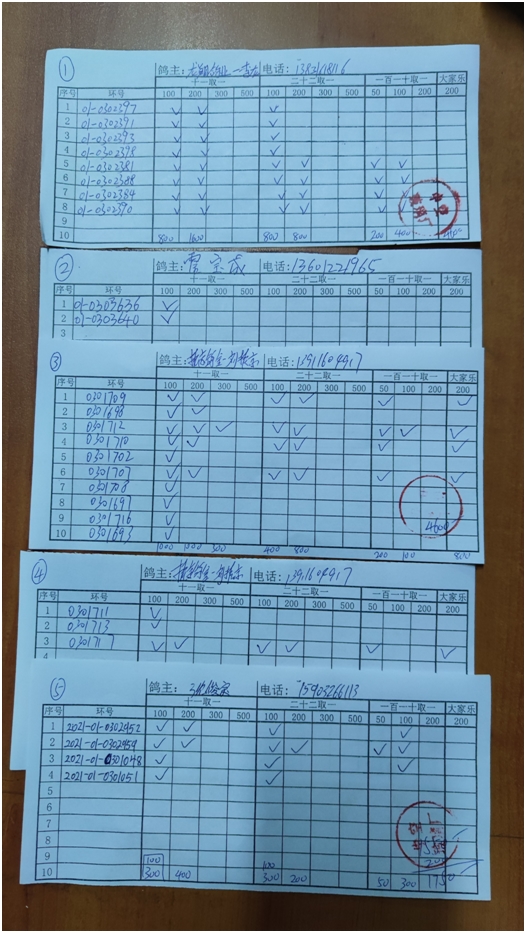 ①
鸽主: 电话:
十一取一 二十二取一 一百一十取一 大家乐
序号 环号 100 200 300 500 100 200 300 500 50 100 200 200
1 01-0302397 ✓ ✓ ✓
2 01-0302391 ✓ ✓ ✓
3 01-0302393 ✓ ✓ ✓
4 01-0302398 ✓ ✓ ✓
5 01-0302381 ✓ ✓ ✓ ✓ ✓ ✓
6 01-0302388 ✓ ✓ ✓ ✓ ✓ ✓
7 01-0302384 ✓ ✓ ✓ ✓ ✓ ✓
8 01-0302390 ✓ ✓ ✓ ✓ ✓ ✓
9
10 800 1600 800 800 200 400
②
鸽主: 电话:13601221965
十一取一 二十二取一 一百一十取一 大家乐
序号 环号 100 200 300 500 100 200 300 500 50 100 200 200
1 01-0303636 ✓
2 01-0303640 ✓
3
③
鸽主: 电话:
十一取一 二十二取一 一百一十取一 大家乐
序号 环号 100 200 300 500 100 200 300 500 50 100 200 200
1 0301709 ✓ ✓ ✓ ✓ ✓ ✓
2 0301698 ✓ ✓
3 0301712 ✓ ✓ ✓ ✓ ✓ ✓ ✓ ✓
4 0301710 ✓ ✓ ✓ ✓ ✓ ✓
5 0301702 ✓
6 0301707 ✓ ✓ ✓ ✓ ✓ ✓
7 0301708 ✓
8 0301697 ✓
9 0301716 ✓
10 0301693 ✓
1000 1000 300 400 800 200 100 800
4600
④
鸽主: 电话:
十一取一 二十二取一 一百一十取一 大家乐
序号 环号 100 200 300 500 100 200 300 500 50 100 200 200
1 0301711 ✓
2 0301713 ✓
3 0301717 ✓ ✓ ✓ ✓ ✓ ✓
4
⑤
鸽主: 电话:15903266113
十一取一 二十二取一 一百一十取一 大家乐
序号 环号 100 200 300 500 100 200 300 500 50 100 200 200
1 2021-01-0302452 ✓ ✓ ✓ ✓
2 2021-01-0302454 ✓ ✓ ✓ ✓ ✓ ✓
3 2021-01-0301048 ✓ ✓ ✓
4 2021-01-0301051 ✓ ✓
5
6
7
8
9 100 100
10 300 400 300 200 50 300 1750